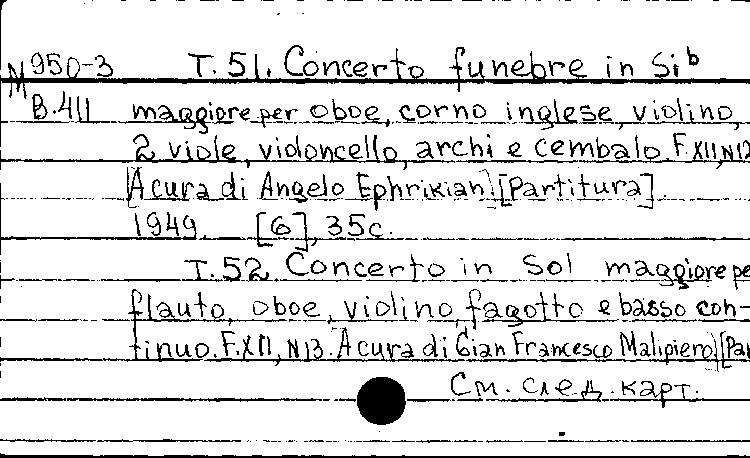 M 950-3 T. 51. Concerto funebre in Si b
B.411 maggiore per oboe, corno inglese, violino,
2 viole, violoncello, archi e cembalo. F.XII, N12
[A cura di Angelo Ephrikian] [Partitura]
1949. [6], 35c.
T. 52. Concerto in Sol maggiore pe
flauto, oboe, violino, fagotto e basso con-
tinuo. F.XII, N13. A cura di Gian Francesco Malipiero] [Par
См. след. карт.